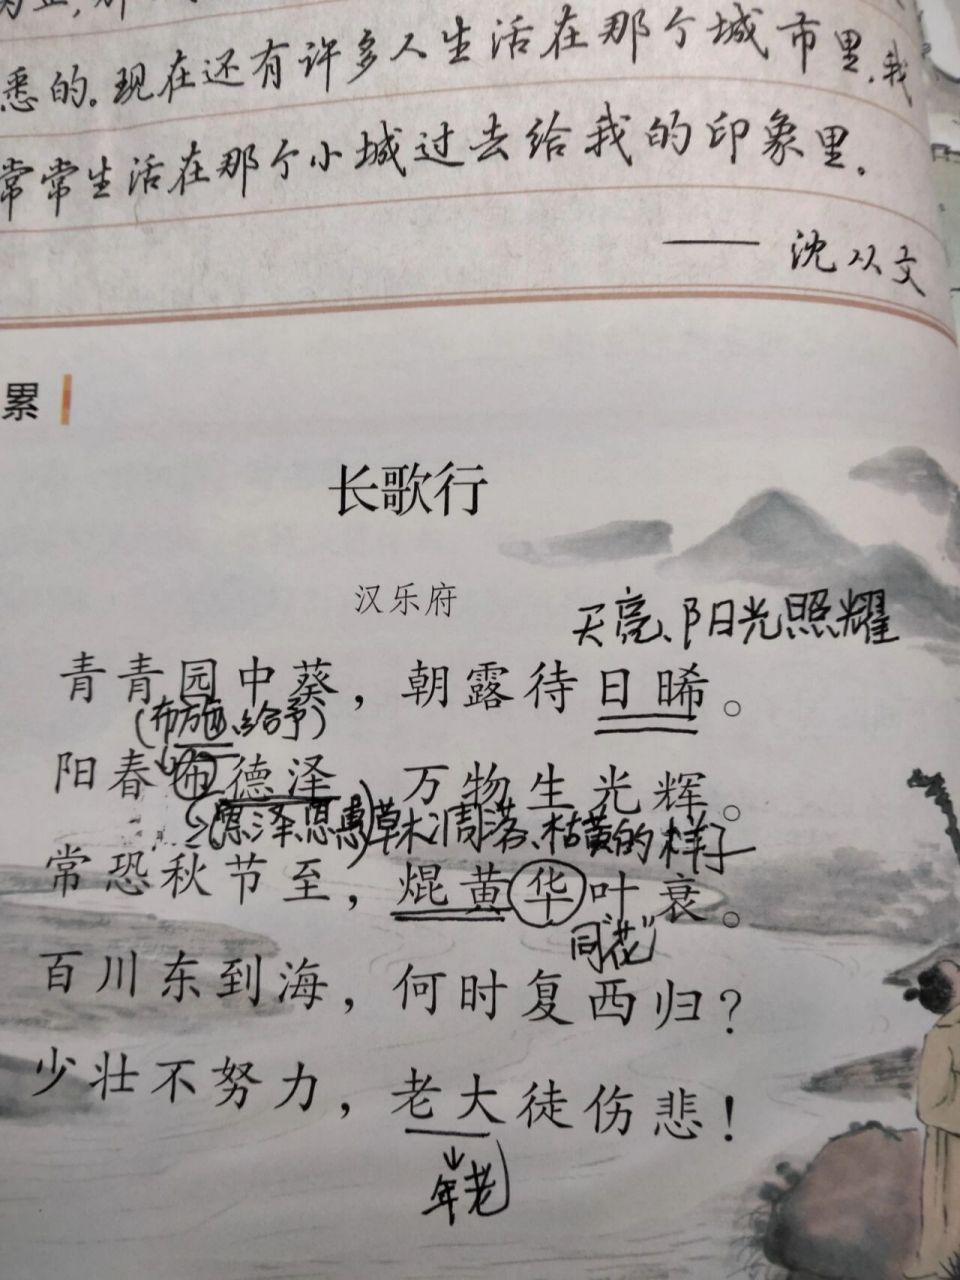 悉的。现在还有许多人生活在那个城市里，我
常常生活在那个小城过去给我的印象里。
—— 沈从文
累
长歌行
汉乐府
天亮、阳光照耀
青青园中葵，朝露待日晞。
(布施、给予)
阳春布德泽 万物生光辉。
(恩泽、恩惠)草木凋落、枯黄的样子
常恐秋节至，焜黄华叶衰。
同“花”
百川东到海，何时复西归？
少壮不努力，老大徒伤悲！
年老